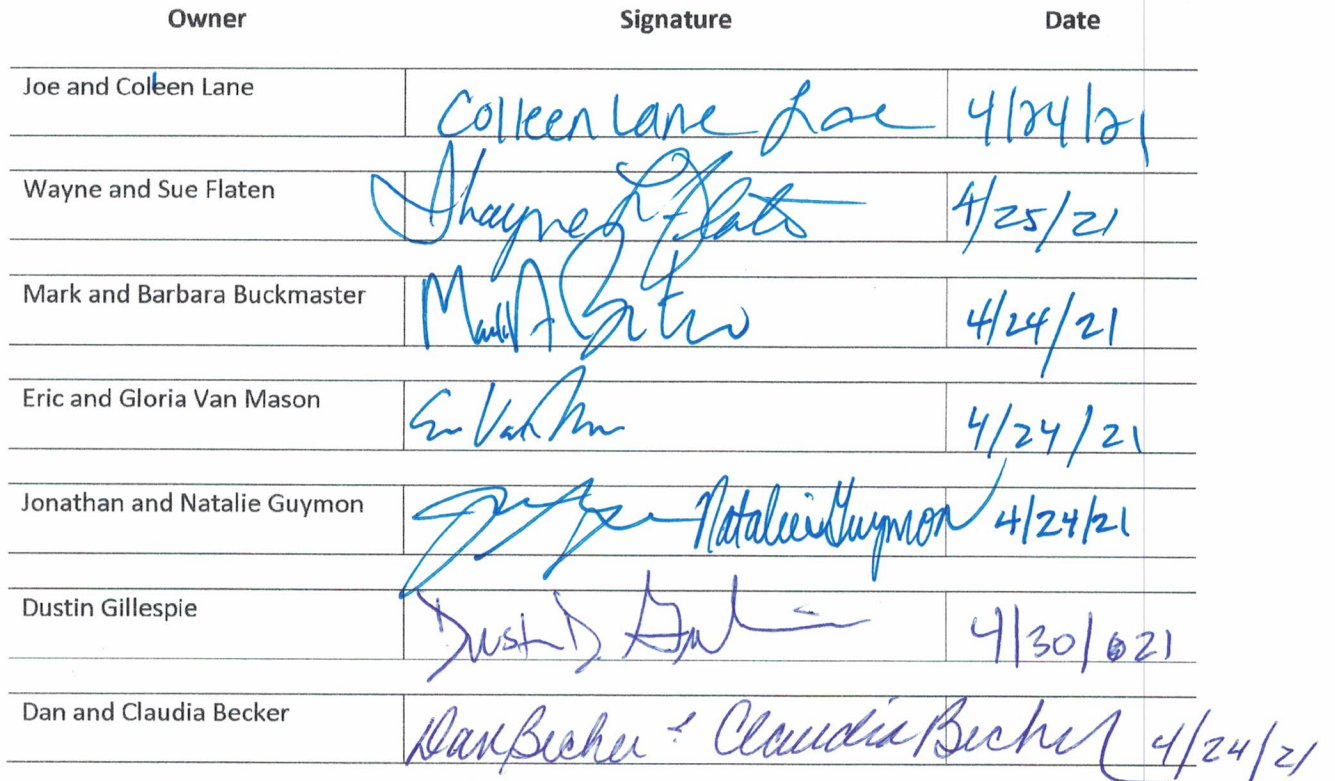 Owner Signature Date
Joe and Colleen Lane Colleen Lane 4/24/21
Wayne and Sue Flaten Thayne L Flaten 4/25/21
Mark and Barbara Buckmaster Mark A 4/24/21
Eric and Gloria Van Mason Van 4/24/21
Jonathan and Natalie Guymon Natalie Guymon 4/24/21
Dustin Gillespie Dustin D 4/30/21
Dan and Claudia Becker Dan Becker & Claudia Becker 4/24/21